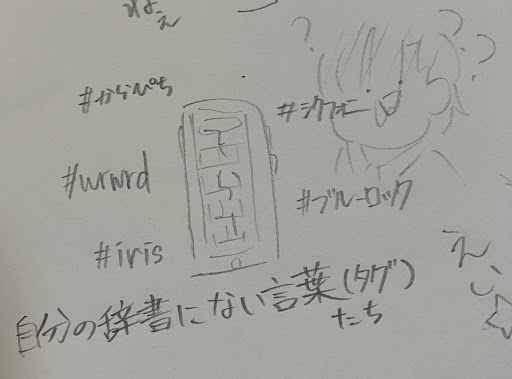 ? ? ?
#からぴち
#シクフォニ
#wrwrd
#ブルーロック
#iris
自分の辞書にない言葉(タグ)
たち